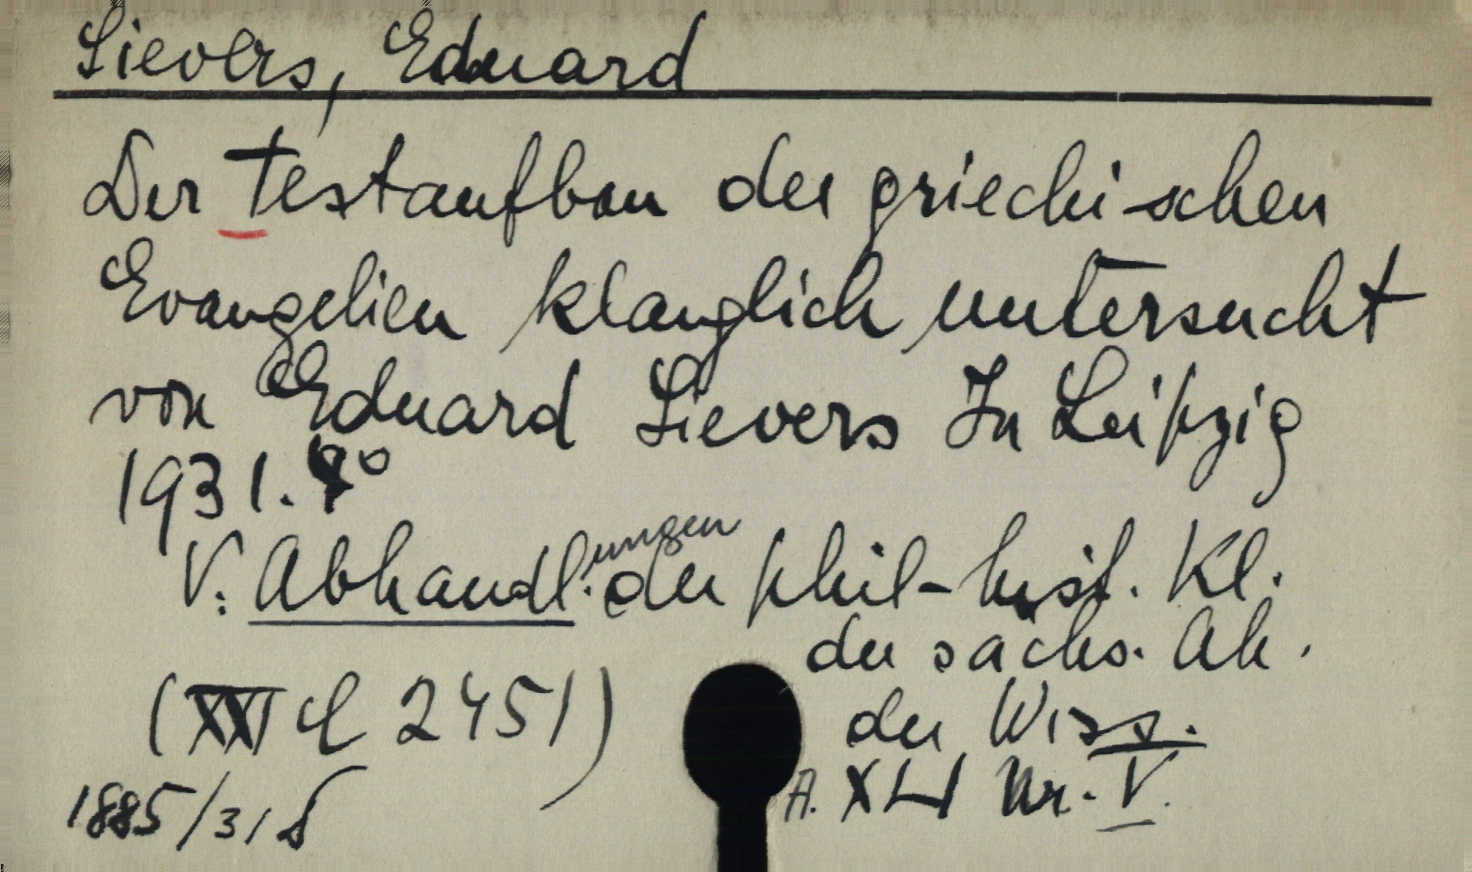 Sievers, Eduard
Der Testaufbau der griechischen
Evangelien klanglich untersucht
von Eduard Sievers In Leipzig
1931. 4°
V: Abhandl.ungen der phil-hist. Kl.
der sächs. Ak.
(XXI 2451)
der Wiss.
A. XLI Nr. V.
1885/31